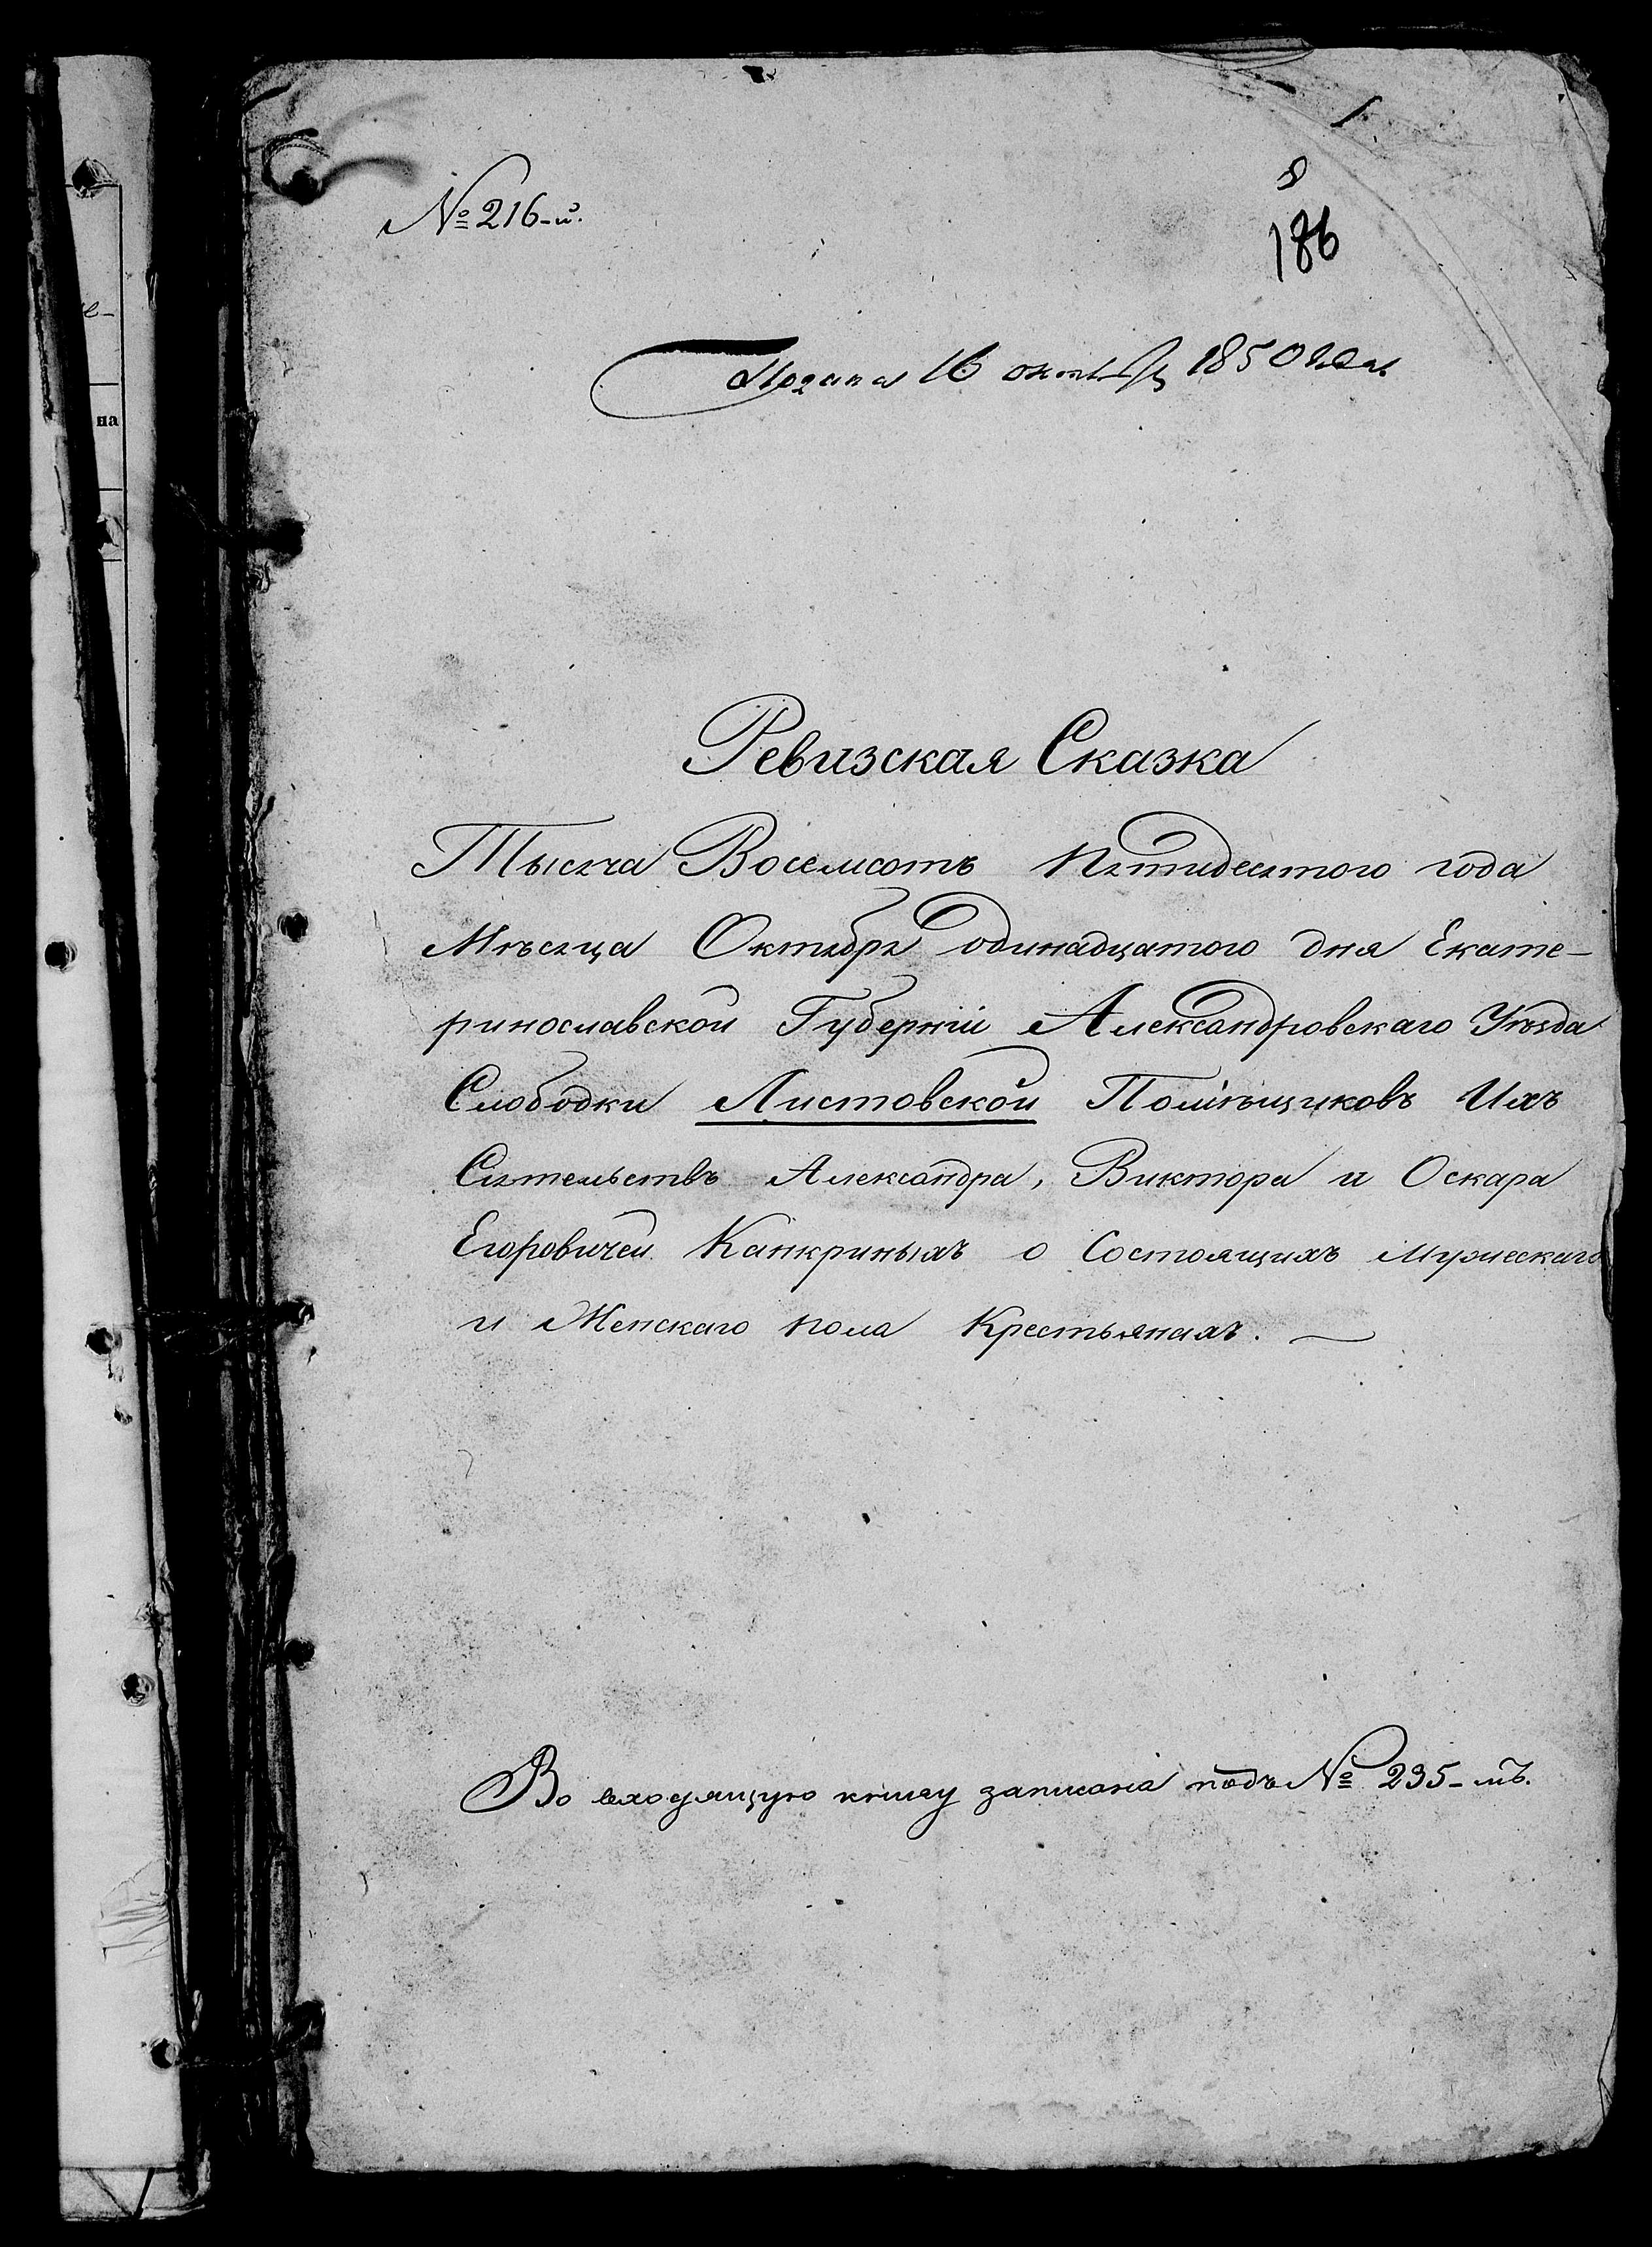 1
8
№ 216-й.
186
Подана 16 октября 1850 года
Ревизская Сказка
Тысяча Восемсотъ пятидесятого года
Мѣсяца Октября одинадцатого дня Екате-
ринославской Губерніи Александровскаго Уѣзда
Слободки Листовской Помѣщиковъ Ихъ
Сіятельствъ Александра, Виктора и Оскара
Егоровичей Канкриныхъ о Состоящихъ мужескаго
и Женскаго пола Крестьянахъ. —
Во входящую книгу записана подъ № 235-мъ.
на